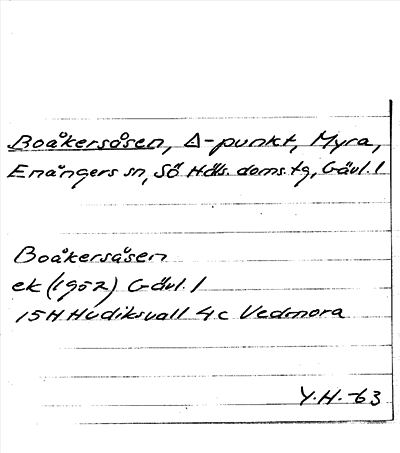 Boåkersåsen, Δ-punkt, Myra,
Enångers sn, Sö Häls. doms. tg, Gävl. l
Boåkersåsen
ek (1952) Gävl. l
15H Hudiksvall 4c Vedmora
Y.H. -63